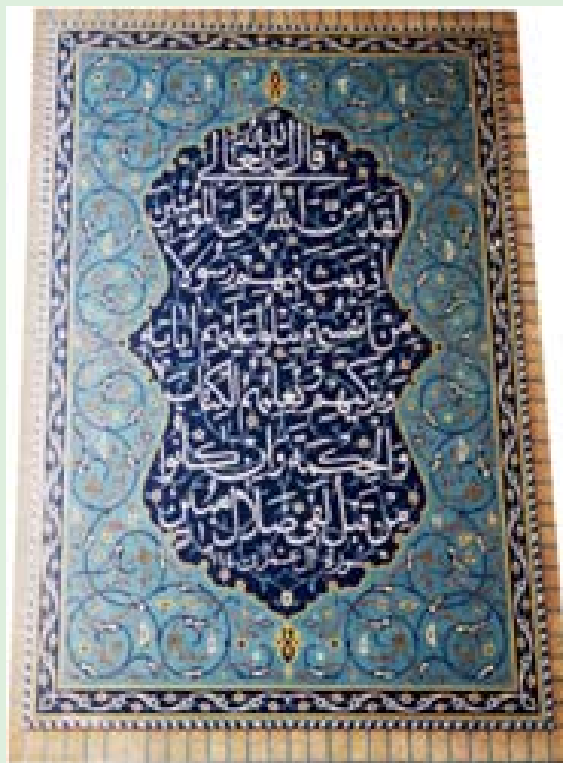 قال الله تعالى
لقد من الله على المؤمنين
إذ بعث فيهم رسولا
من أنفسهم يتلوا عليهم اياته
ويزكيهم ويعلمهم الكتاب
والحكمة وان كانوا
من قبل لفي ضلال مبين
سورة آل عمران